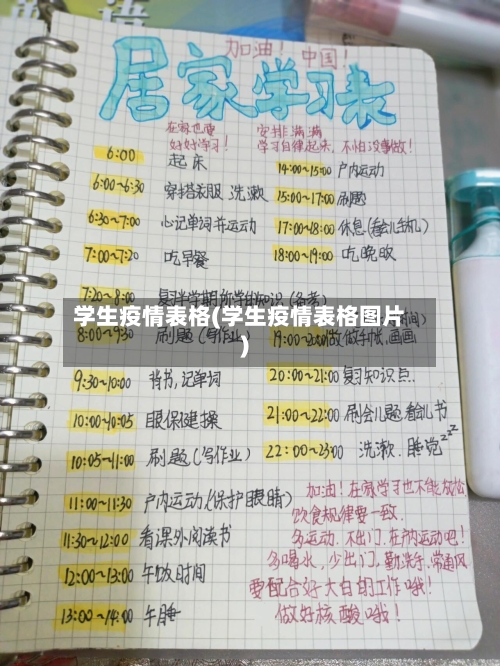 加油! 中国!
居家学习表
在家也要
好好学习!
安排满满
学习自律起来,不怕没事做!
6:00 起床
6:00~6:30 穿搭衣服 洗漱
6:30~7:00 心记单词并运动
7:00~7:20 吃早餐
7:20~8:00 复习半学期所学的知识(备考)
8:00~9:30 刷题(写作业)
9:30~10:00 背书,记单词
10:00~10:05 眼保健操
10:05~11:00 刷题(写作业)
11:00~11:30 户内运动(保护眼睛)
11:30~12:00 看课外阅读书
12:00~13:00 午饭时间
13:00~14:00 午睡
14:00~15:00 户内运动
15:00~17:00 刷题
17:00~18:00 休息(看会儿手机)
18:00~19:00 吃晚饭
19:00~20:00 做做手帐,画画
20:00~21:00 复习知识点
21:00~22:00 刷会儿题 看会儿书
22:00~23:00 洗漱.睡觉zzz
加油!在家学习也不能放松
饮食规律要一致.
多运动.不出门.在户内运动吧!
多喝水,少出门,勤洗手,常通风
要配合好大白的工作哦!
做好核酸哦!
学生疫情表格(学生疫情表格图片
)